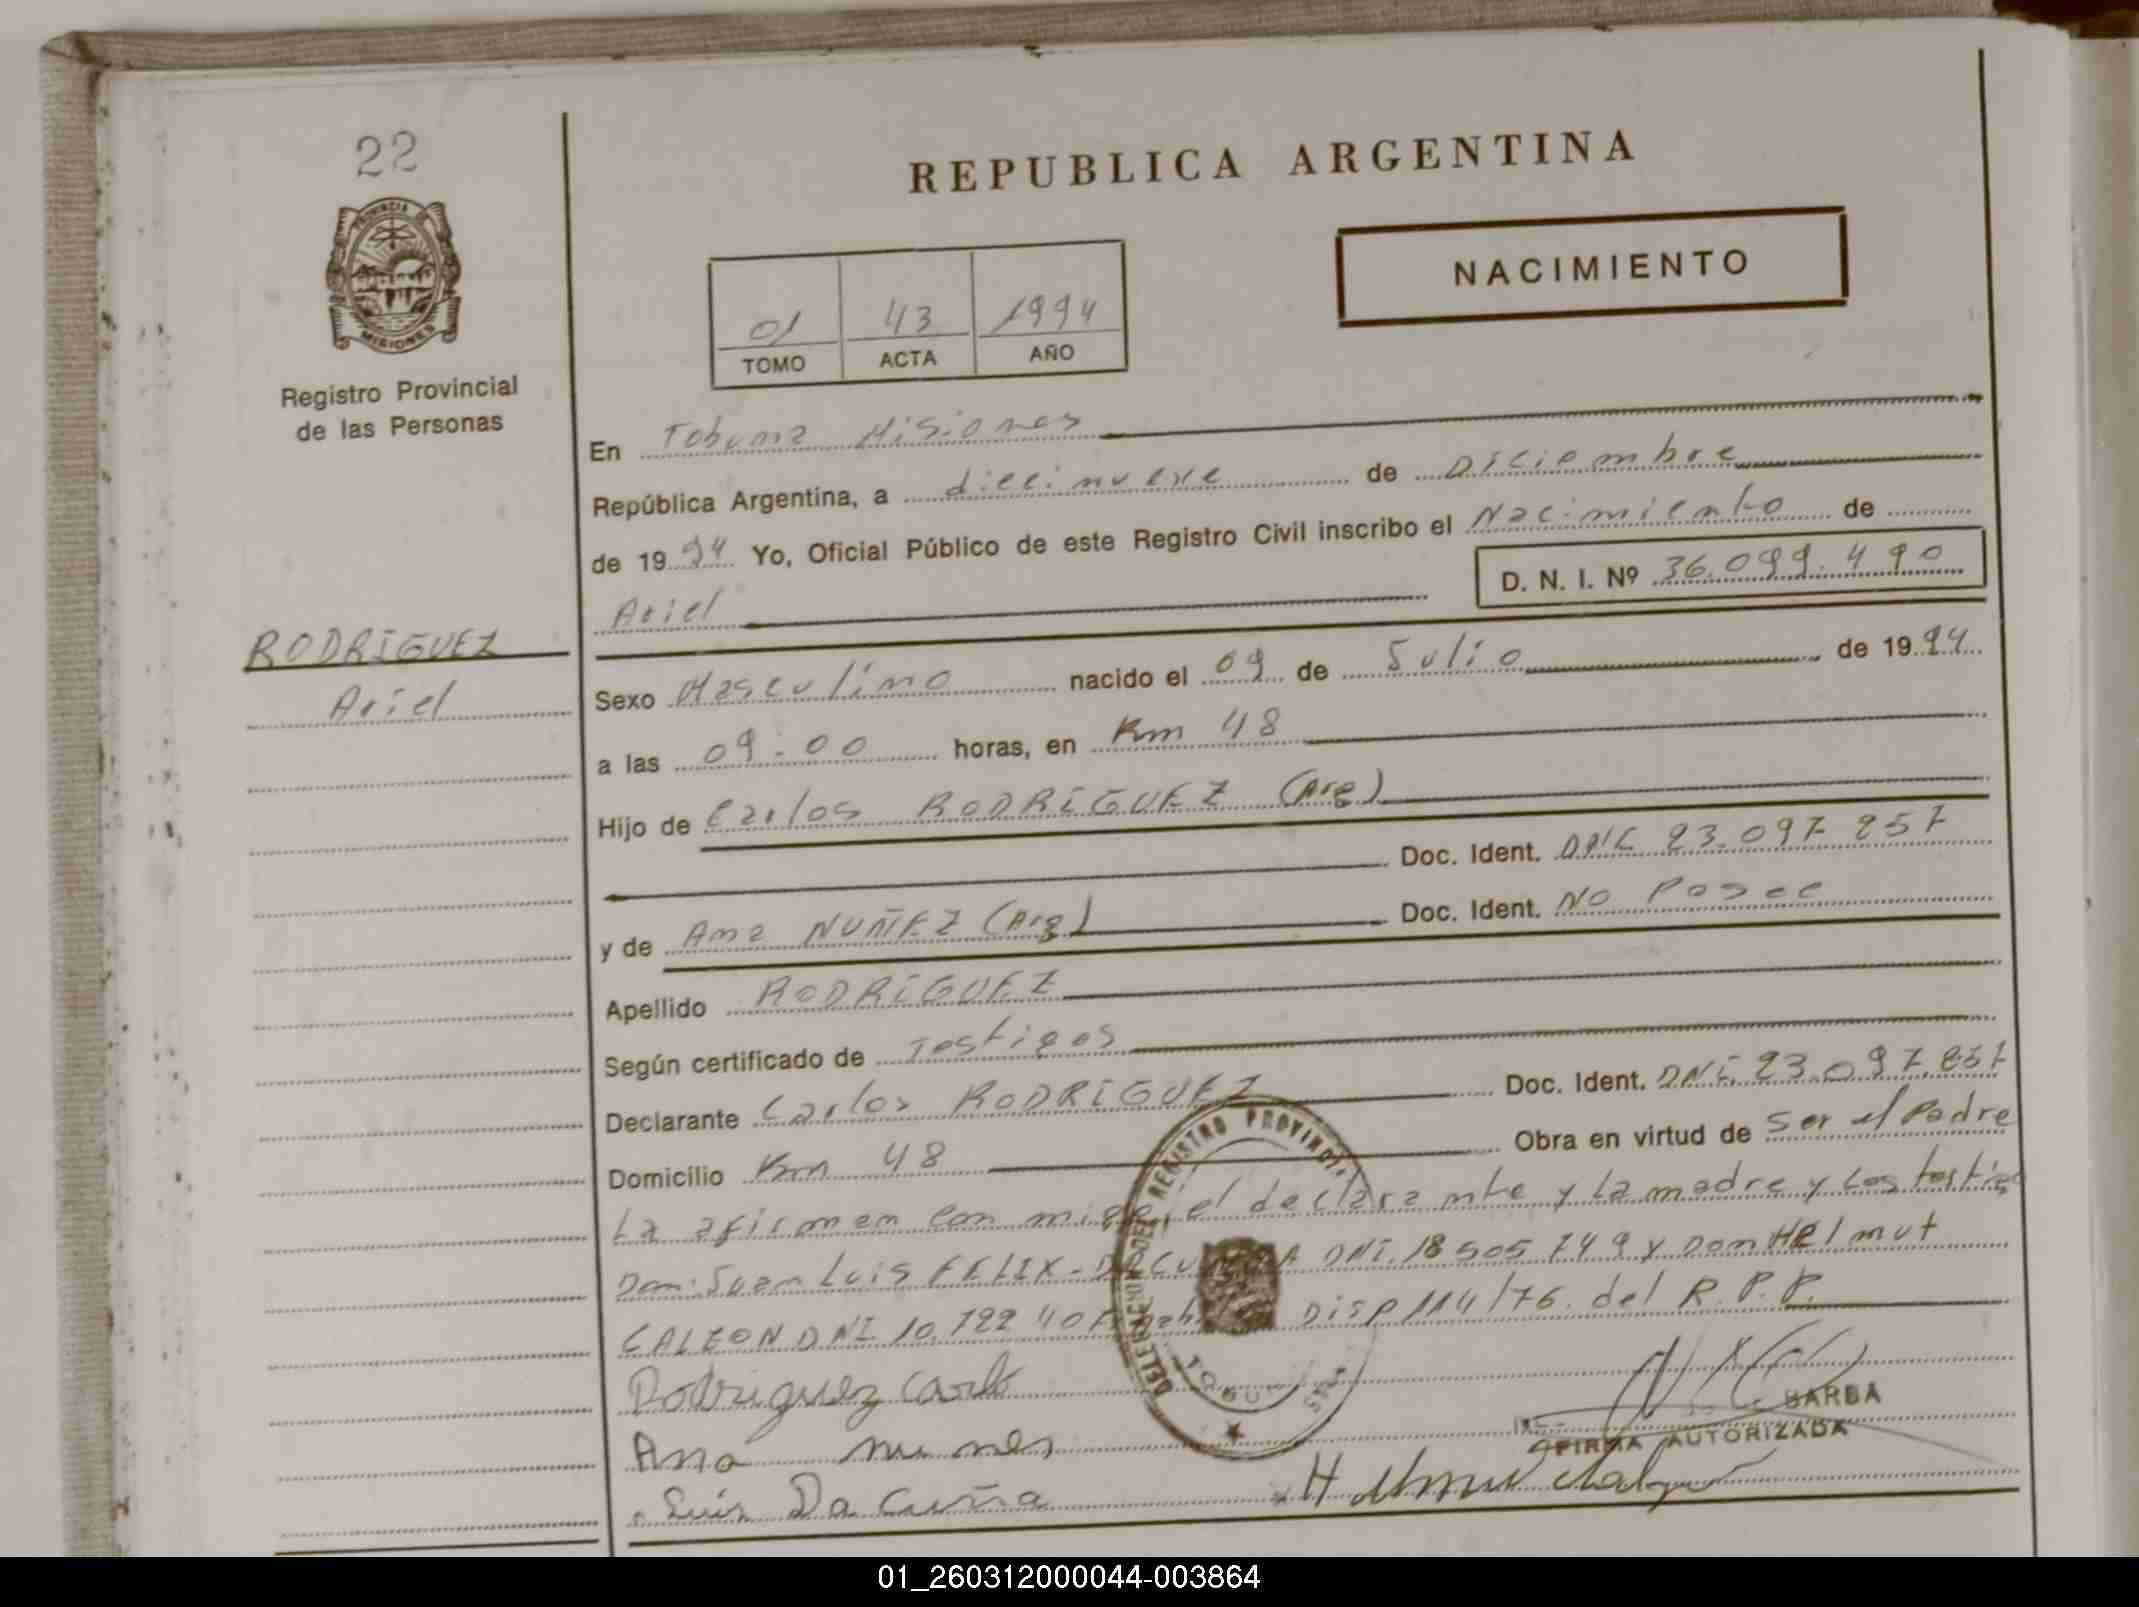 22
PROVINCIA DE
MISIONES
Registro Provincial
de las Personas
REPUBLICA ARGENTINA
NACIMIENTO
01 43 1994
TOMO ACTA AÑO
En Tobuna Misiones
República Argentina, a diecinueve de Diciembre
de 1994 Yo, Oficial Público de este Registro Civil inscribo el Nacimiento de
Ariel D. N. I. Nº 36.099.490
RODRIGUEZ
Ariel
Sexo Masculino nacido el 09 de Julio de 1994
a las 09.00 horas, en Km 48
Hijo de Carlos RODRIGUEZ (Arg)
Doc. Ident. DNI 23.097 257
y de Ana NUÑEZ (Arg) Doc. Ident. No Posee
Apellido RODRIGUEZ
Según certificado de Testigos
Declarante Carlos RODRIGUEZ Doc. Ident. DNI 23.097.257
Domicilio Km 48 Obra en virtud de Ser el Padre
La afirman con migo, el declarante y La madre y Los testigos
Don: Juan Luis FELIX - DNI. 18 505 749 y Don Helmut
DNI 10.722 Disp 114/76. del R.P.P.
Rodriguez Carlo
Ana nunes
Luis Da Cuña
BARBA
FIRMA AUTORIZADA
DELEGACION DEL REGISTRO PROVINCIAL
01_260312000044-003864